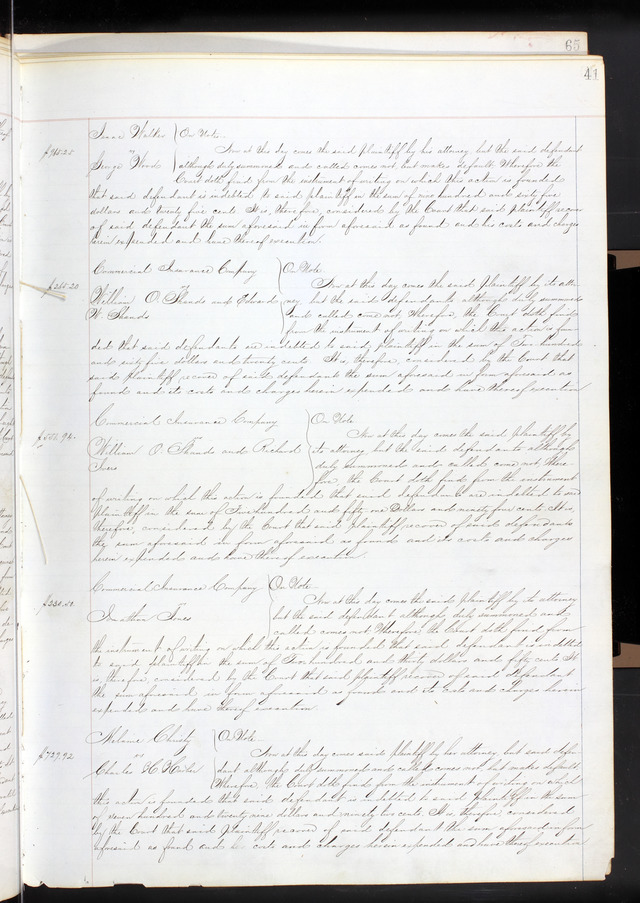 65
41
Isaac Walker On Note
$165.25 vs Now at this day comes the said plaintiff by his attorney but the said defendant
George Wood although duly summoned and called comes not but makes default. Wherefore the
Court doth find from the instrument of writing on which this action is founded
that said defendant is indebted to said plaintiff in the sum of one hundred and sixty five
dollars and twenty five cents. It is, therefore, considered by the Court that said plaintiff recover
of said defendant the sum aforesaid in form aforesaid as found and his costs and charges
herein expended and have thereof execution.
Commercial Insurance Company On Note
vs Now at this day comes the said plaintiff by its attor
William O. Shands and Edward ney, but the said defendants although duly summoned
W. Shands and called come not. Wherefore, the Court doth find
from the instrument of writing on which the action is foun
ded that said defendants are indebted to said plaintiff in the sum of hundred
and sixty five dollars and twenty cents. It is, therefore, considered by the Court that
said plaintiff recover of said defendants the sum aforesaid in form aforesaid as
found and its costs and charges herein expended and have thereof execution
Commercial Insurance Company On Note
vs Now at this day comes the said plaintiff by
William O. Shands and Richard its attorney but the said defendants although
duly summoned and called come not. Where
fore, the Court doth find from the instrument
of writing on which this action is founded that said defendants are indebted to said
plaintiff in the sum of hundred and fifty one Dollars and ninety four cents. It is
therefore, considered by the Court that said plaintiff recover of said defendants
the sum aforesaid in form aforesaid as found and its costs and charges
herein expended and have thereof execution
Commercial Insurance Company On Note
$230.50 vs Now at this day comes the said plaintiff by its attorney
Jonathan but the said defendant although duly summoned and
called comes not. Wherefore, the Court doth find from
the instrument of writing on which this action is founded that said defendant is indebted
to said plaintiff in the sum of Two hundred and thirty dollars and fifty cents. It
is, therefore, considered by the Court that said plaintiff recover of said defendant
the sum aforesaid in form aforesaid as found and its costs and charges herein
expended and have thereof execution.
Melanie Christy On Note
$729.92 vs Now at this day comes said plaintiff by her attorney, but said defen
Charles H. dant although duly summoned and called comes not but makes default.
Wherefore, the Court doth find from the instrument of writing on which
this action is founded that said defendant is indebted to said plaintiff in the sum
of seven hundred and twenty nine dollars and ninety two cents. It is, therefore, considered
by the Court that said plaintiff recover of said defendant the sum aforesaid in form
aforesaid as found and costs and charges herein expended and have thereof execution